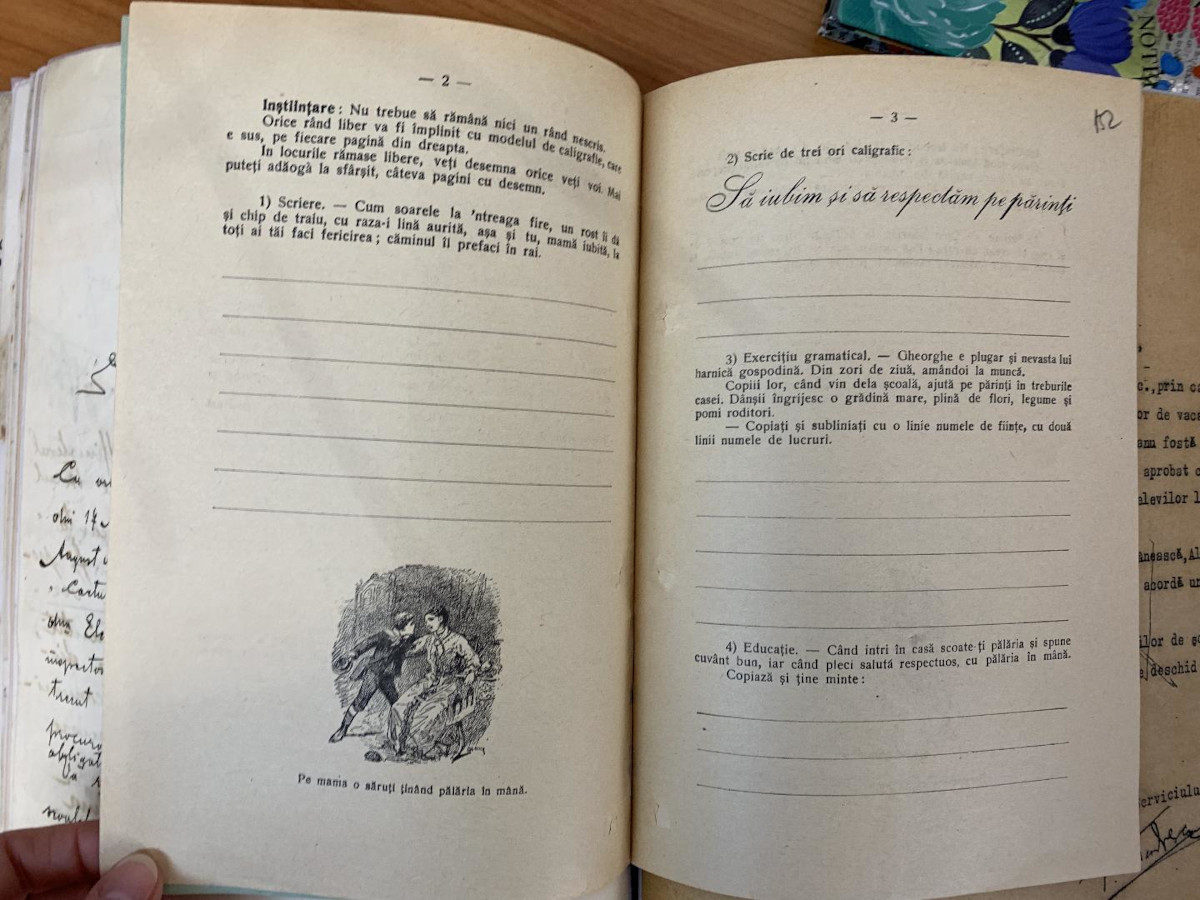 — 2 —
Inștiințare : Nu trebue să rămână nici un rând nescris.
Orice rând liber va fi împlinit cu modelul de caligrafie, care
e sus, pe fiecare pagină din dreapta.
In locurile rămase libere, veți desemna orice veți voi. Mai
puteți adăoga la sfârșit, câteva pagini cu desemn.
1) Scriere. — Cum soarele la 'ntreaga fire, un rost îi dă
și chip de traiu, cu raza-i lină aurită, așa și tu, mamă iubită, la
toți ai tăi faci fericirea ; căminul îl prefaci în rai.
Pe mama o săruți ținând pălăria în mână.
— 3 —
152
2) Scrie de trei ori caligrafic :
Să iubim și să respectăm pe părinți
3) Exercițiu gramatical. — Gheorghe e plugar și nevasta lui
harnică gospodină. Din zori de ziuă, amândoi la muncă.
Copiii lor, când vin dela școală, ajută pe părinți în treburile
casei. Dânșii îngrijesc o grădină mare, plină de flori, legume și
pomi roditori.
— Copiați și subliniați cu o linie numele de ființe, cu două
linii numele de lucruri.
4) Educație. — Când intri în casă scoate-ți pălăria și spune
cuvânt bun, iar când pleci salută respectuos, cu pălăria în mână.
Copiază și ține minte :
Cu
August
prin
or de vaca
fostă
aprobat
elevilor
abordă
ilor de
deschid
erviciulu